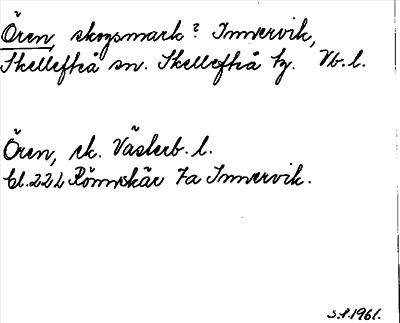 Ören, skogsmark? Innervik,
Skellefteå sn. Skellefteå tg. Vb. l.
Ören, sk. Västerb. l.
bl. 22 L Rönnskär 7a Innervik.
S.P. 1961.